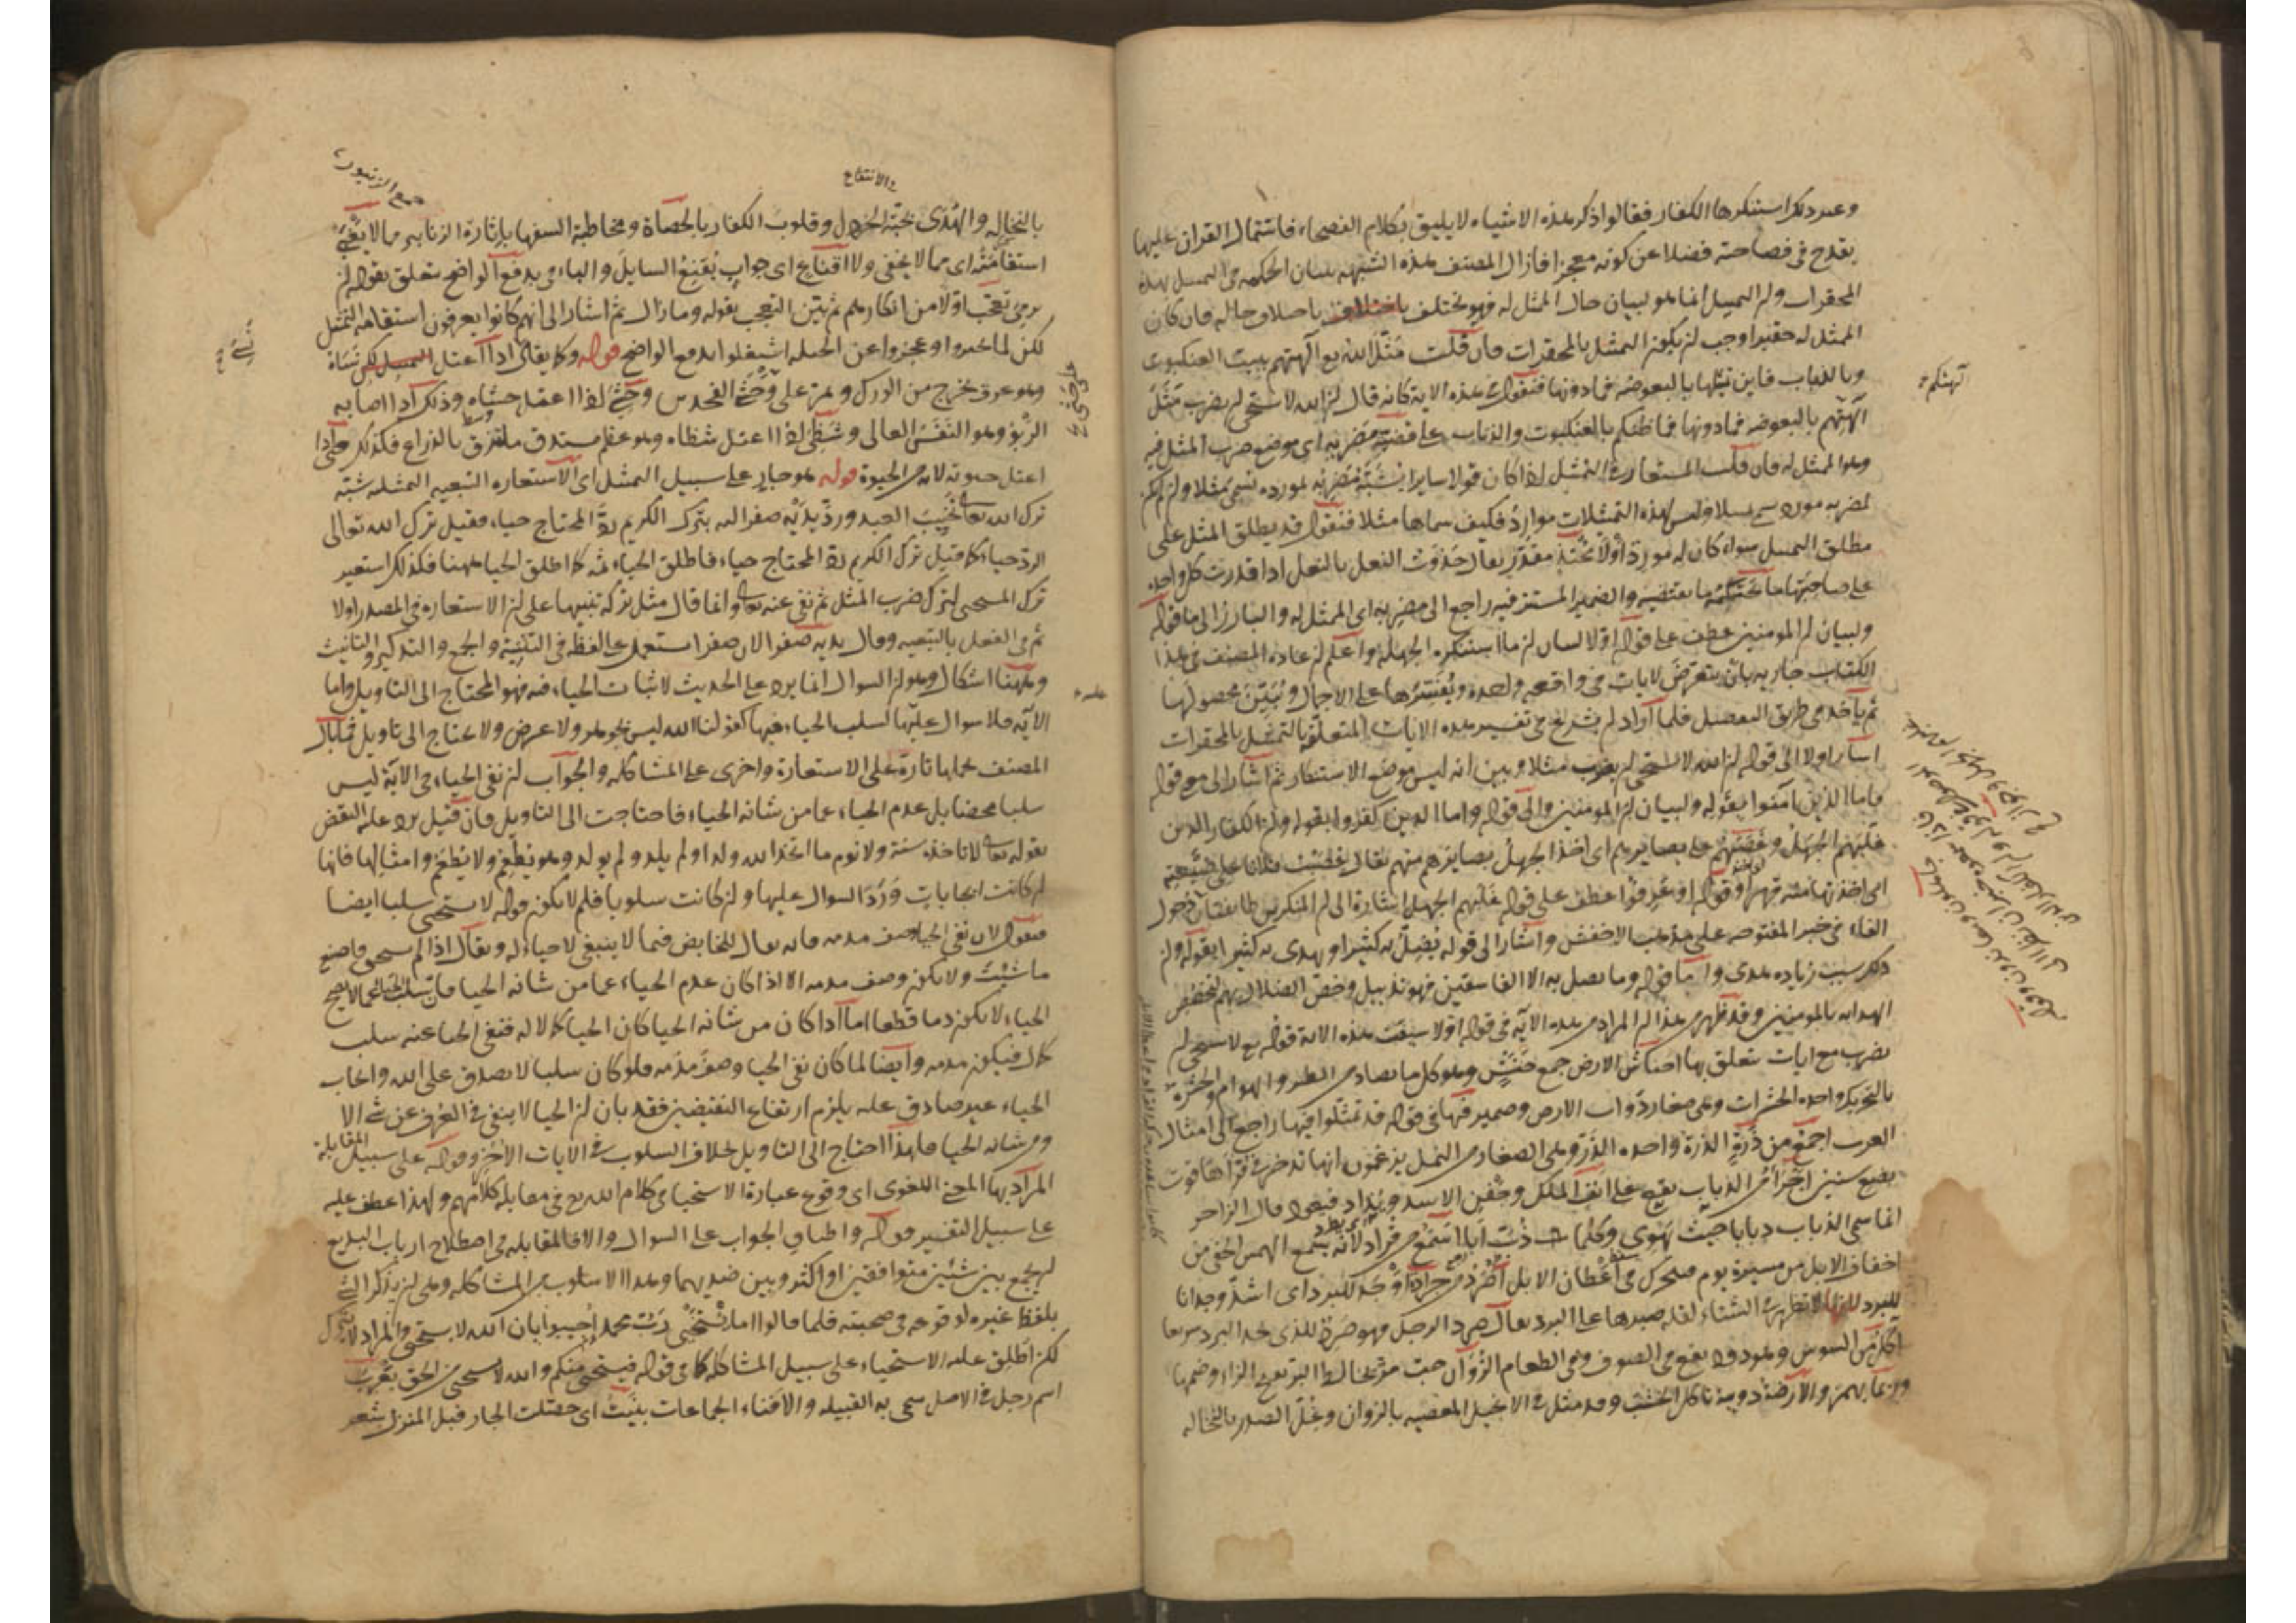 وغير ذلك استنكرها الكفار فقالوا ذكر هذه الاشياء لا يليق بكلام الفصحاء فاشتمال القران عليها
يقدح في فصاحته فضلا عن كونه معجزا فازال المصنف هذه الشبهة ببيان الحكمة في التمثيل بهذه
المحقرات ولم التمثيل انما هو لبيان حال الممثل له فهو يختلف باختلاف حاله فان كان
الممثل له حقيرا وجب ان يكون التمثيل بالمحقرات فان قلت مثل الله تع آلهتهم ببيت العنكبوت
وبالذباب فاين تمثيلها بالبعوضة فما دونها فنقول هذه الاية كانه قال ان الله لا يستحي ان يضرب مثل
آلهتهم بالبعوضة فما دونها فما ظنكم بالعنكبوت والذباب على قضية مضربه اى موضع ضرب المثل فيه
وهو الممثل له فان قلت المستعار في التمثيل اذا كان قولا سايرا يشبه مضربه بمورده تسمى مثلا وان لم يكن
لمضربه مورد سمي تمثيلا وليس لهذه التمثيلات موارد فكيف سماها مثلا فنقول قد يطلق المثل على
مطلق التمثيل سواء كان له مورد او لا تحتذيه مقدر يقال حذوت النعل بالنعل اذا قدرت كل واحدة
على صاحبتها ما يقتضيه والضمير المستتر فيه راجع الى مضربه اى الممثل له والبارز الى ما قوله
ولبيان ان المؤمنين عطف على قوله اولا لبيان ان ما استنكره الجهلة واعلم ان عادة المصنف في هذا
الكتاب جارية بان يتعرض لايات في واقعة واحدة ويفسرها على الاجمال ويبين محصولها
ثم يأخذ في طريق التفصيل فلما اراد ان يشرع في تفسير هذه الايات المتعلقة بالتمثيل بالمحقرات
اشار اولا الى قوله ان الله لا يستحي ان يضرب مثلا وبين انه ليس موضع الاستنكار ثم اشار الى قوله
فاما الذين آمنوا بقوله ولبيان ان المؤمنين والى قوله واما الذين كفروا بقوله وان الكفار الذين
غلبهم الجهل وغصبهم على بصايرهم اى اخذ الجهل بصايرهم منهم يقال غصبت فلانا على
اى اخذتها منه قهرا وقوله او عرفوا عطف على قوله غلبهم الجهل اشارة الى ان المنكرين طايفتان دخول
الفاء في خبر المفتوحة على مذهب الاخفش واشار الى قوله يضل به كثيرا ويهدى به كثيرا بقوله وان
ذكر سبب زيادة هدى واما قوله وما يضل به الا الفاسقين فهو تذييل وخص الضلال بهم لتخصيص
الهداية بالمومنين وقد ظهر من هذا ان المراد من هذه الآية في قوله اولا سيقت هذه الاية قوله تع لا يستحي ان
يضرب مع ايات تتعلق بها احناش الارض جمع حنش وهو كل ما يصاد من الطير والهوام والحشرة
بالتحريك واحدة الحشرات وهي صغار دواب الارض وضمير فيها في قوله قد تمثلوا فيها راجع الى امثال
العرب اجمع من ذرة الذرة واحدة الذر وهي الصغار من النمل يزعمون انها تدخر في قراها قوت
سنين اجرأ من الذباب يقع على انف الملك وجفن الاسد ويذاد فيعود قال الراجز
انما سمي الذباب ذبابا حيث يهوي وكلما ذب آبا اسمع من قراد لانه يسمع الهمس الخفي من
اخفاف الابل من مسيرة يوم فيتحرك في اعطان الابل اصرد من جرادة من وجد للبرد اى اشد وجدانا
للبرد لانها لا تظهر في الشتاء لقلة صبرها على البرد يقال صرد الرجل فهو صرد للذى يجد البرد سريعا
آكل من السوس وهو دود يقع في الصوف وفي الطعام الزوان حب مر يخالط البر بفتح الزاء وضمها
وربما يهمز والأرضة دويبة تاكل الخشب وقد مثل في الانجيل المعصية بالزوان وغل الصدر بالنخالة
آلهتكم
والانتفاخ
وهو الزنبور
بالنخاله والهدى بحبة الخردل وقلوب الكفار بالحصاة ومخاطبة السفها باثارة الزنابير مما لا يغبى
استقامته اى مما لا يخفى ولا اقناع اى جواب يقنع السايل والباء في بدفع الواضح متعلق بقوله ان
يرمي تعجب اولا من انكارهم ثم بين التعجب بقوله وما زال ثم اشار الى انهم كانوا يعرفون استقامة التمثيل
لكن لما تحيروا وعجزوا عن الحيلة اشتغلوا بدفع الواضح قوله وكما يقال اذا اعتل نساه
وهو عرق يخرج من الورك ويمر على الفخذين وحشي اذا اعتل حشاه وذلك اذا اصابه
الربو وهو النفس العالى وشظي اذا اعتل شظاه وهو عظم مستدق ملتزق بالذراع فكذلك حيي اذا
اعتل حيوته لانه من الحيوة قوله هو جار على سبيل التمثيل اى الاستعارة التبعية التمثيلية شبه
ترك الله تعالى تخييب العبد ورد يديه صفرا اليه بترك الكريم رد المحتاج حياء فقيل ترك الله تعالى
الرد حياء كما قيل ترك الكريم رد المحتاج حياء فاطلق الحياء ثمه كما اطلق الحيا ههنا فكذلك استعير
ترك المستحيي لترك ضرب المثل ثم نفى عنه تعالى وانما قال مثل تركه تنبيها على ان الاستعارة في المصدر اولا
ثم في الفعل بالتبعية وقال يديه صفرا لان صفرا استعمل على لفظه في التثنية والجمع والتذكير والتانيث
وههنا اشكال وهو ان السوال انما يرد على الحديث لاثبات الحياء فيه فهو المحتاج الى التاويل واما
الآية فلا سوال عليها لسلب الحياء فيها كقولنا الله ليس بجوهر ولا عرض ولا يحتاج الى تاويل فما بال
المصنف حملها تارة على الاستعارة واخرى على المشاكلة والجواب ان نفي الحياء في الآية ليس
سلبا محضا بل عدم الحياء عما من شانه الحياء فاحتاجت الى التاويل فان قيل يرد عليه النقض
بقوله تعالى لا تاخذه سنة ولا نوم ما اتخذ الله ولدا ولم يلد ولم يولد وهو يطعم ولا يطعم وامثالها فانها
ان كانت ايجابيات ورد السوال عليها وان كانت سلوبا فلم لا يكون قوله لا يستحيي سلبا ايضا
فنقول لان نفي الحياء وصف مذمة فانه يقال للخايض فيما لا ينبغي لا حياء له ويقال اذا لم تستحي فاصنع
ما شئت ولا يكون وصف مذمة الا اذا كان عدم الحياء عما من شانه الحيا فان سلب الحياء عما لا يصح
الحياء لا يكون ذما قطعا اما اذا كان من شانه الحيا كان الحيا كمالا له فنفي الحيا عنه سلب
كمال فيكون مذمة وايضا لما كان نفي الحيا وصف مذمة فلو كان سلبا لا يصدق على الله وايجاب
الحياء غير صادق عليه يلزم ارتفاع النقيضين فقد بان ان الحيا لا ينفى في العرف عن شيء الا
ومن شانه الحيا فلهذا احتاج الى التاويل بخلاف السلوب في الايات الاخر وقوله على سبيل المقابلة
المراد بها المعنى اللغوى اى وقوع عبارة الاستحيا في كلام الله تع في مقابلة كلامهم ولهذا عطف عليه
على سبيل التفسير قوله واطباق الجواب على السوال والا فالمقابلة في اصطلاح ارباب البديع
ان يجمع بين شيئين متوافقين او اكثر وبين ضديهما وهذا الاسلوب من المشاكلة وهي ان يذكر الشئ
بلفظ غيره لوقوعه في صحبته فلما قالوا اما يستحيى رب محمد اجيبوا بان الله لا يستحيى والمراد لا يترك
لكن اطلق عليه الاستحياء على سبيل المشاكلة كما في قوله فيستحيى منكم والله لا يستحيى من الحق يعرب
اسم رجل في الاصل سمي به القبيلة والافناء الجماعات بنيت اى حصلت الجار قبل المنزل بشعر